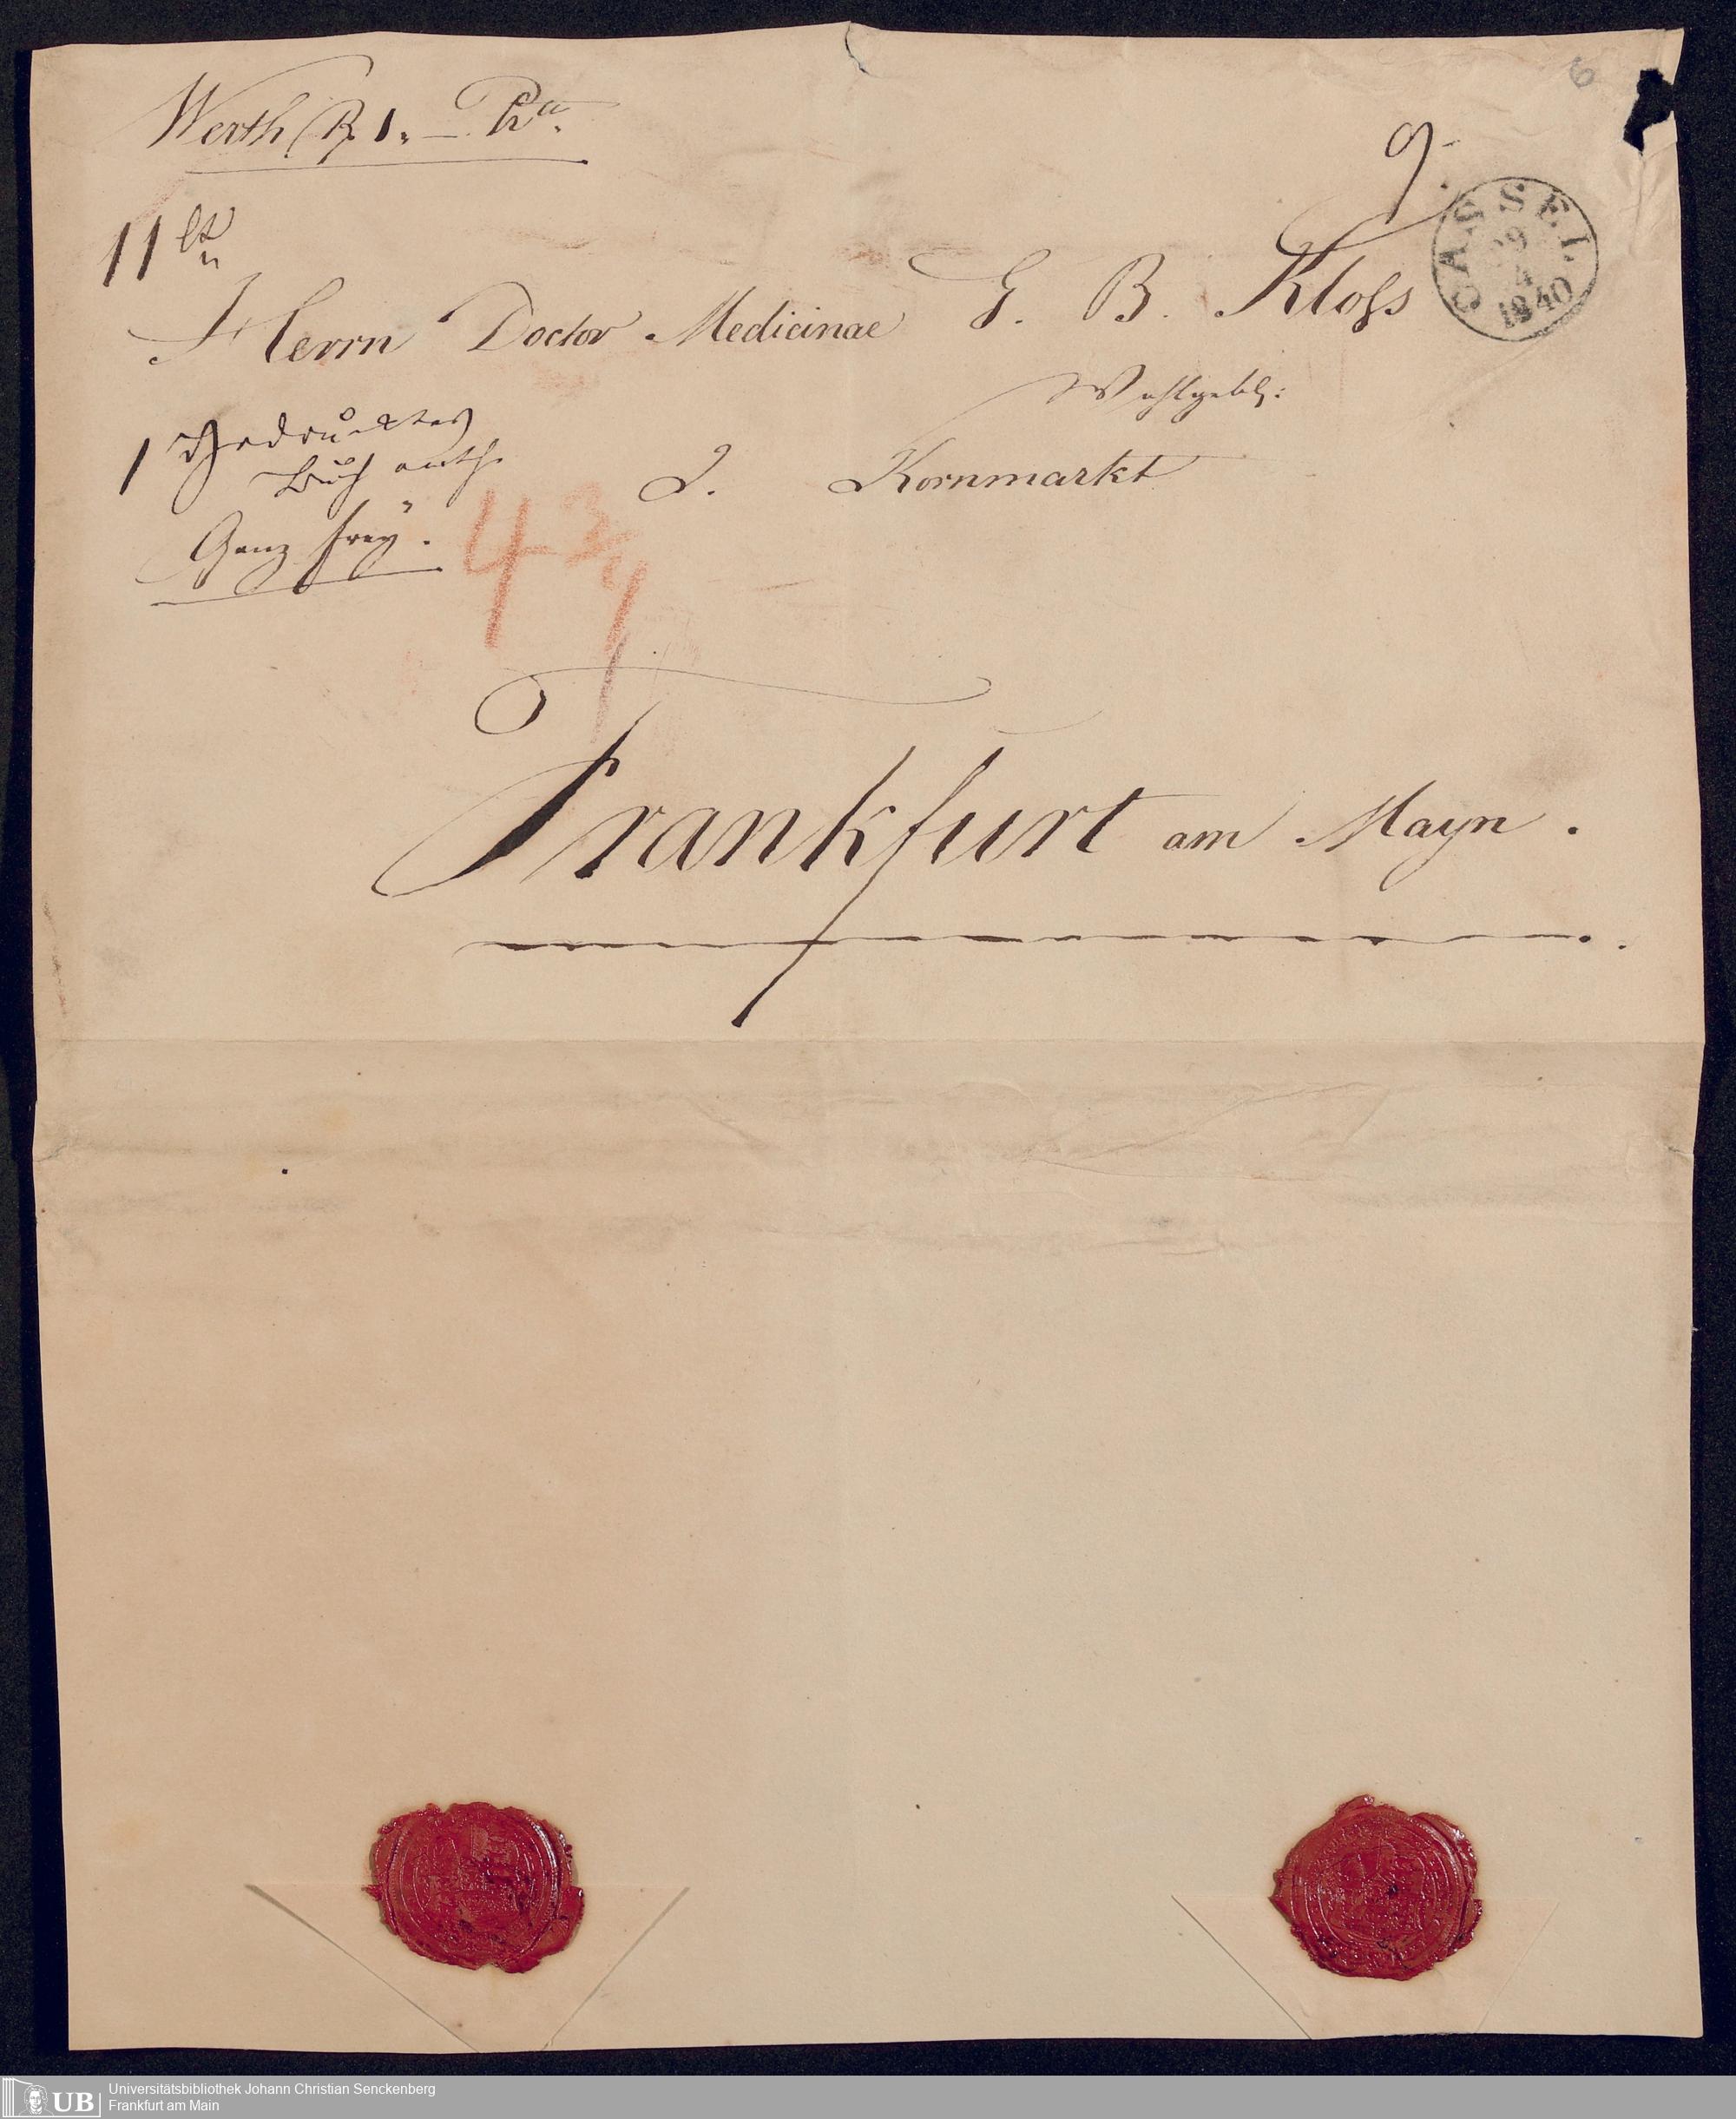 6
Werth R 1. —
9.
CASSEL
29
4
1840
11 lt
Herrn Doctor Medicinae G. B. Kloſs
Wohlgeb:
1 Gedrucktes
Buch enth.
Ganz frey.
J. Kornmarkt
4 3/4
Frankfurt am Mayn.
UB
Universitätsbibliothek Johann Christian Senckenberg
Frankfurt am Main